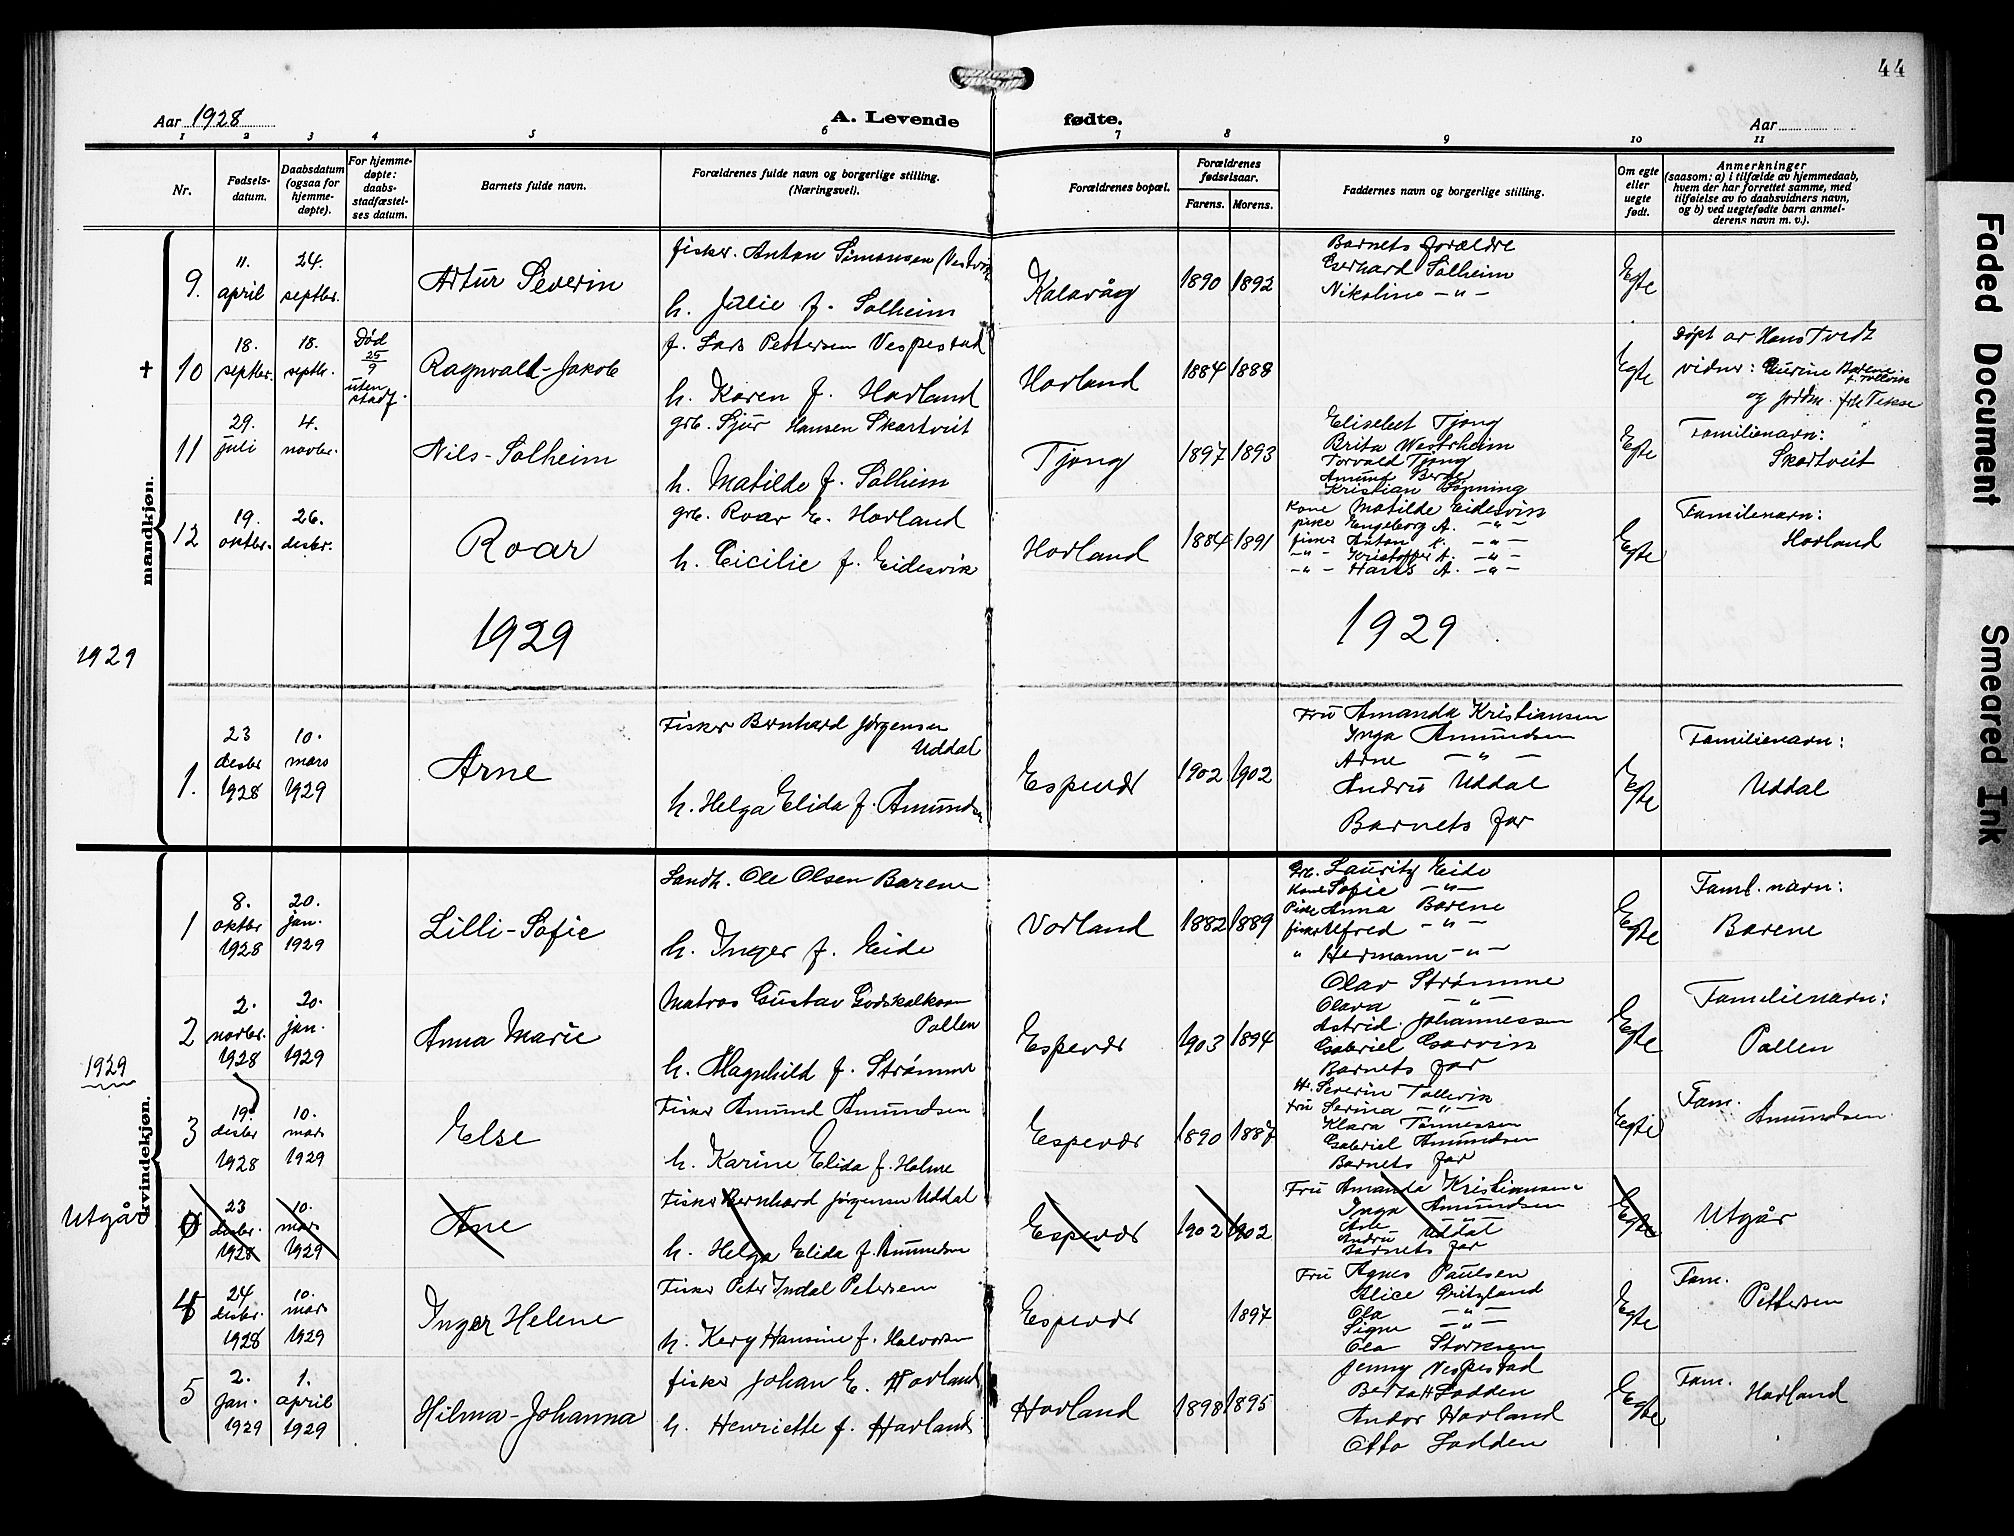 44
Aar 1928
A. Levende fødte.
Aar
1 2 3 4 5 6 7 8 9 10 11
Nr.
Fødsels-
datum.
Daabsdatum
(ogsaa for
hjemme-
døpte).
For hjemme-
døpte:
daabs-
stadfæstel-
ses datum.
Barnets fulde navn.
Forældrenes fulde navn og borgerlige stilling.
(Næringsvei).
Forældrenes bopæl.
Forældrenes
fødselsaar.
Farens. Morens.
Faddernes navn og borgerlige stilling.
Om egte
eller
uegte
født.
Anmerkninger
(saasom: a) i tilfælde av hjemmedaab,
hvem der har forrettet samme, med
tilføielse av to daabsvidners navn,
og b) ved uegtefødte barn anmel-
derens navn m. v.).
mandkjøn.
9.
11.
april
24.
septbr.
Artur Severin
fisker. Anton Simonsen (Vestvik
h. Julie f. Solheim
Kalavåg
1890 1892
Barnets forældre
Gerhard Solheim
Nikoline -"-
Egte
† 10
18.
septbr.
18.
septbr.
Død
25/9
uten
stadf.
Ragnvald-Jakob
f. Lars Pettersen Vespestad
h. Karen f. Hovland
Hovland
1884 1888
Egte
Døpt av Hans Tvedt
vidner: Laurine Barene
f. Tollevik
og jordm. frk Tekse
11
29.
juli
4.
novbr.
Nils-Solheim
grb. Sjur Hansen Skartveit
h. Matilde f. Solheim
Tjong
1897 1893
Eliesebet Tjong
Brita Westrheim
Torvald Tjong
Amund Berge
Kristian Tjong
Egte
Familienavn:
Skartveit
12
19.
oktbr.
26.
desbr.
Roar
grb. Roar E. Hovland
h. Cicilie f. Eidesvik
Hovland
1884 1891
Kone Matilde Eidesvik
pike Engeborg A. -"-
fisker Anton A. -"-
-"- Kristoffer A. -"-
-"- Hans A. -"-
Egte
Familenavn:
Hovland
1929
1929
1929
1.
23
desbr
1928
10.
mars
1929
Arne
Fisker Bernhard Jørgensen
Uddal
h. Helga Elida f. Amundsen
Espevær
1902 1902
Fru Amanda Kristiansen
Inga Amundsen
Arne -"-
Andru Uddal
Barnets far
Egte
Familienavn:
Uddal
kvindekjøn.
1
8.
oktbr
1928
20.
jan.
1929
Lilli-Sofie
Landh. Ole Olsen Barene
h. Inger f. Eide
Vorland
1882 1889
Grb. Lauritz Eide
Kone Sofie -"-
Pike Anna Barene
fisker Alfred -"-
" Hermann -"-
Egte
Faml. navn:
Barene
1929
2
2.
novbr.
1928
20.
jan.
1929
Anna Marie
Matros Gustav Godskalksen
Pollen
h. Magnhild f. Strømme
Espevær
1903 1894
Olav Strømme
Olava -"-
Astrid Johannessen
Gabriel Garvik
Barnets far
Egte
Familienavn:
Pollen
3
19.
desbr
1928
10.
mars
1929
Else
Fisker Amund Amundsen
h. Karine Elida f. Holme
Espevær
1890 1887
Hr. Severin Tollevik
Fru Serina -"-
Klara Tønnessen
Gabriel Amundsen
Barnets far
Egte
Fam.
Amundsen
Utgår
23
desbr.
1928
10.
mars
1929
Ane
Fisker Bernhard Jørgensen Uddal
h. Helga Elida f. Amundsen
Espevær
1902 1902
Fru Amanda Kristiansen
Inga Amundsen
Arne "
Andru Uddal
Barnets far
Egte
Utgår
4
24
desbr.
1928
10.
mars
1929
Inger Helene
Fisker Peter Indal Petersen
h. Kery Hansine f. Halvorsen
Espevær
1897
Fru Agnes Paulsen
Alice Gritzland
Ola -"-
Signe -"-
Ola Storksen
Egte
Fam.
Pettersen
5
2.
jan.
1929
1.
april
1929
Hilma-Johanna
fisker Johan E. Hovland
h. Henriette f. Havland
Hovland
1898 1895
Jenny Vespestad
Berta H Lodden
Andor Hovland
Otto Lodden
Egte
Fam.
Hovland
Faded Document
Smeared Ink